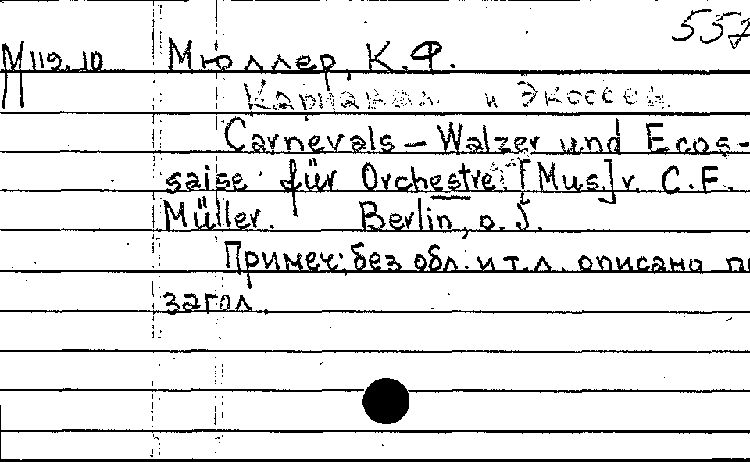 557
М119.10 Мюллер, К.Ф.
Карнавал и Экоссез
Carnevals – Walzer und Ecos-
saise für Orchestre. [Mus.] v. C.F.
Müller. Berlin, o. J.
Примеч: без обл. и т.л. описано п
загол.